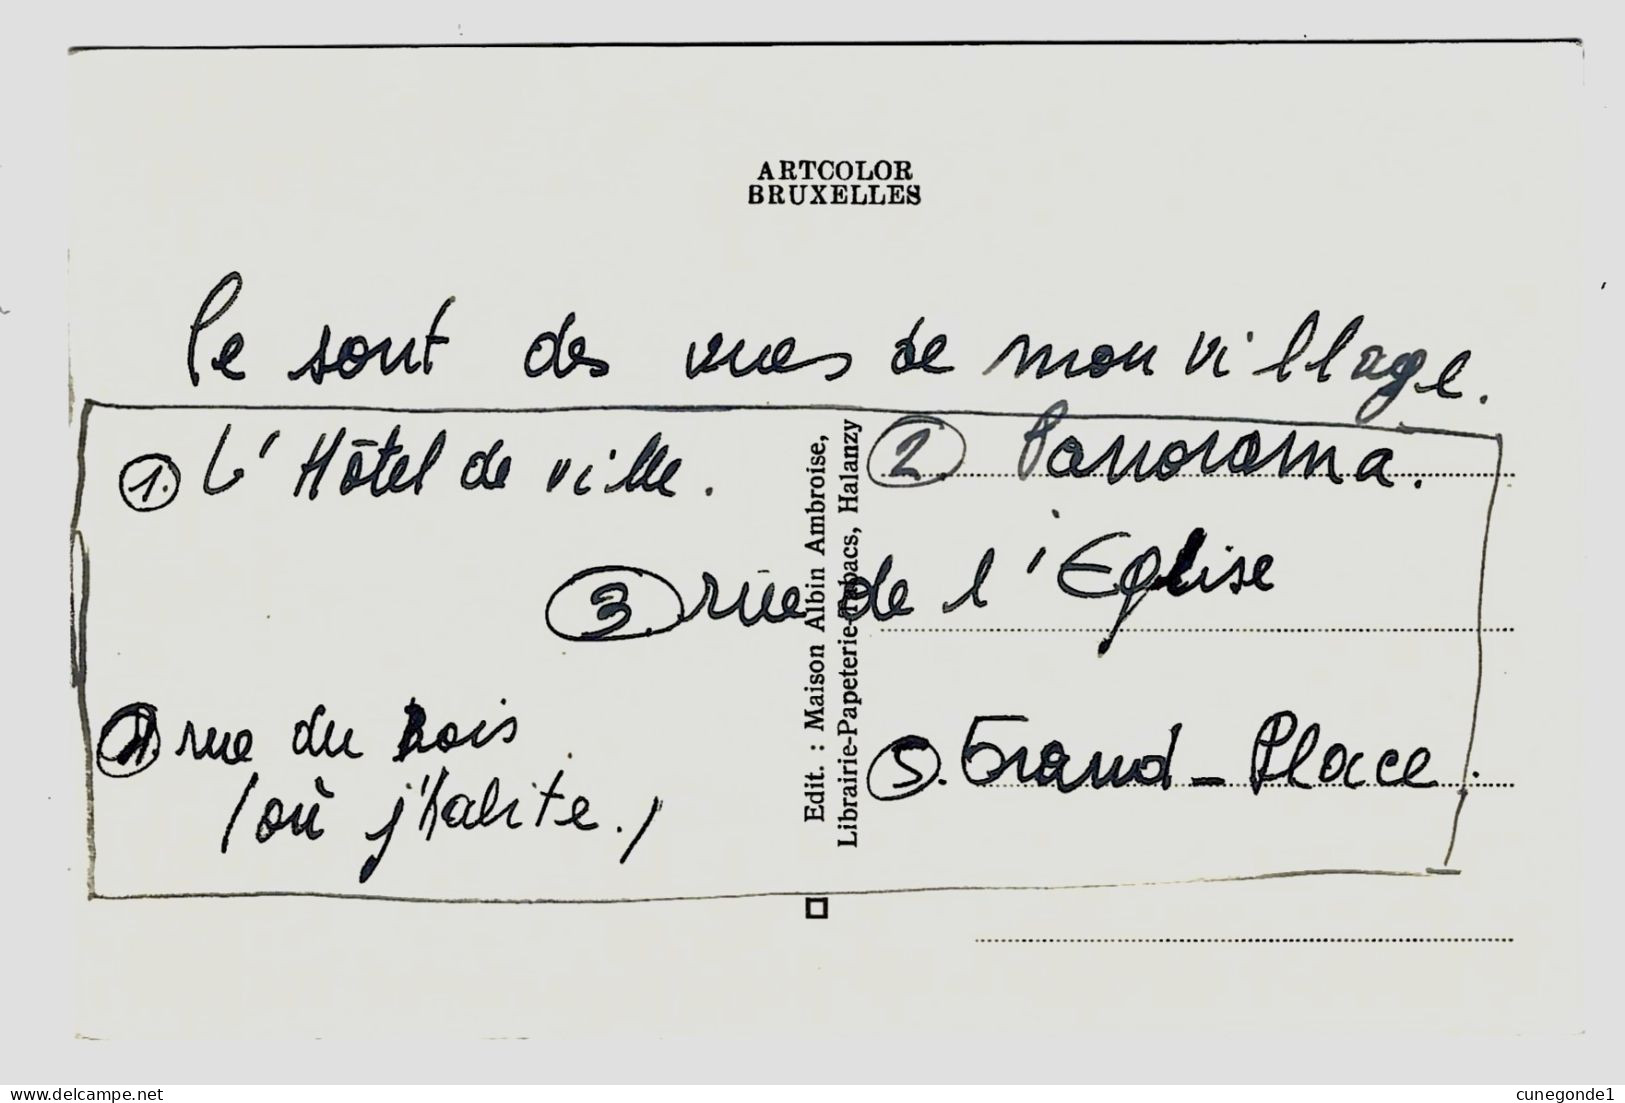 ARTCOLOR
BRUXELLES
Ce sont des vues de mon village.
1. L'Hôtel de ville.
2. Panorama.
3. rue de l'Eglise
4. rue du Bois
(où j'habite.)
5. Grand-Place.
Edit. : Maison Albin Ambroise,
Librairie-Papeterie-Tabacs, Halanzy
www.delcampe.net
cunegonde1